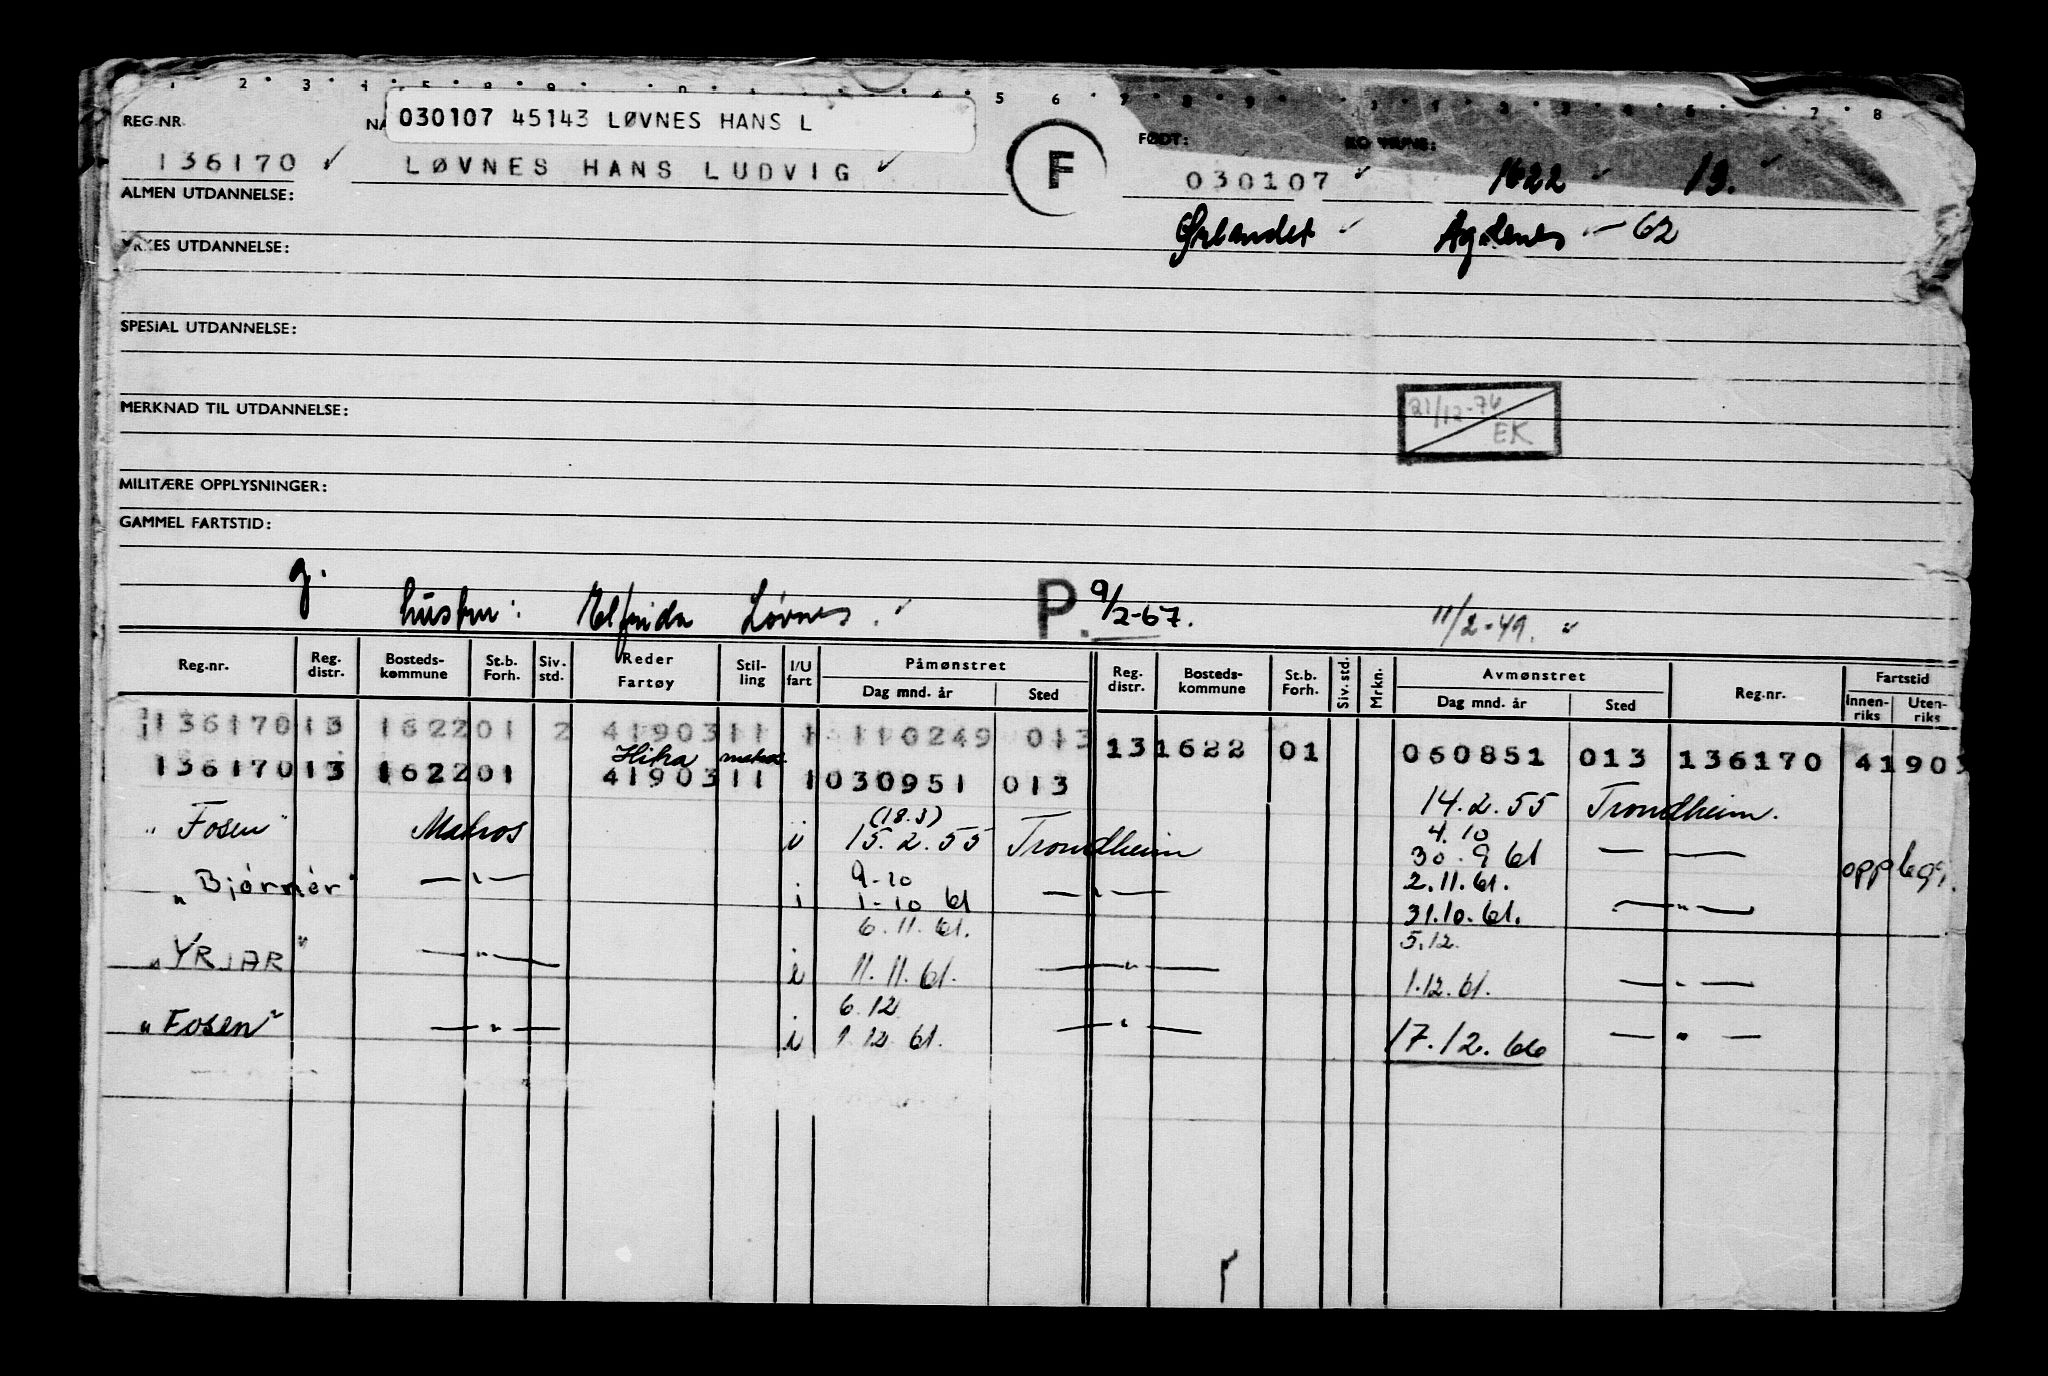 1 2 3 4 5 8 9 0 1 4 5 6 7 8 9 1 1 2 3 6 7 8
REG.NR. NA 030107 45143 LØVNES HANS L FØDT:
136170 LØVNES HANS LUDVIG F 030107 1622 13.
ALMEN UTDANNELSE:
Ørlandet Agdenes - 62
YRKES UTDANNELSE:
SPESIAL UTDANNELSE:
MERKNAD TIL UTDANNELSE: 21/12-76
EK
MILITÆRE OPPLYSNINGER:
GAMMEL FARTSTID:
g.
hustru: Elfrida Løvnes. P. 9/2-67. 11/2-49.
Reg.nr. Reg. distr. Bosteds-kommune St.b. Forh. Siv. std. Reder Fartøy Stil-ling I/U fart Påmønstret Dag mnd. år Sted Reg. distr. Bosteds-kommune St.b. Forh. Siv. std. Mrkn. Avmønstret Dag mnd. år Sted Reg.nr. Fartstid Innen-riks Uten-riks
136170 13 1622 01 2 41903 11 1 110249 013 13 1622 01 060851 013 136170 41903
Hitra matros
136170 13 1622 01 41903 11 1 030951 013 14.2.55 Trondheim.
(18.3) 4.10
"Fosen" Matros i 15.2.55 Trondheim 30.9 61 — — opplegg.
9-10 2.11.61.
"Bjørnør" — " — i 1-10 61 — " — 31.10.61. — " —
6.11.61. 5.12.
"YRJAR" — " — i 11.11.61. — " — 1.12.61. — " —
6.12
"Fosen" — " — i 1.12.61. — " — 17.12.66 — " —